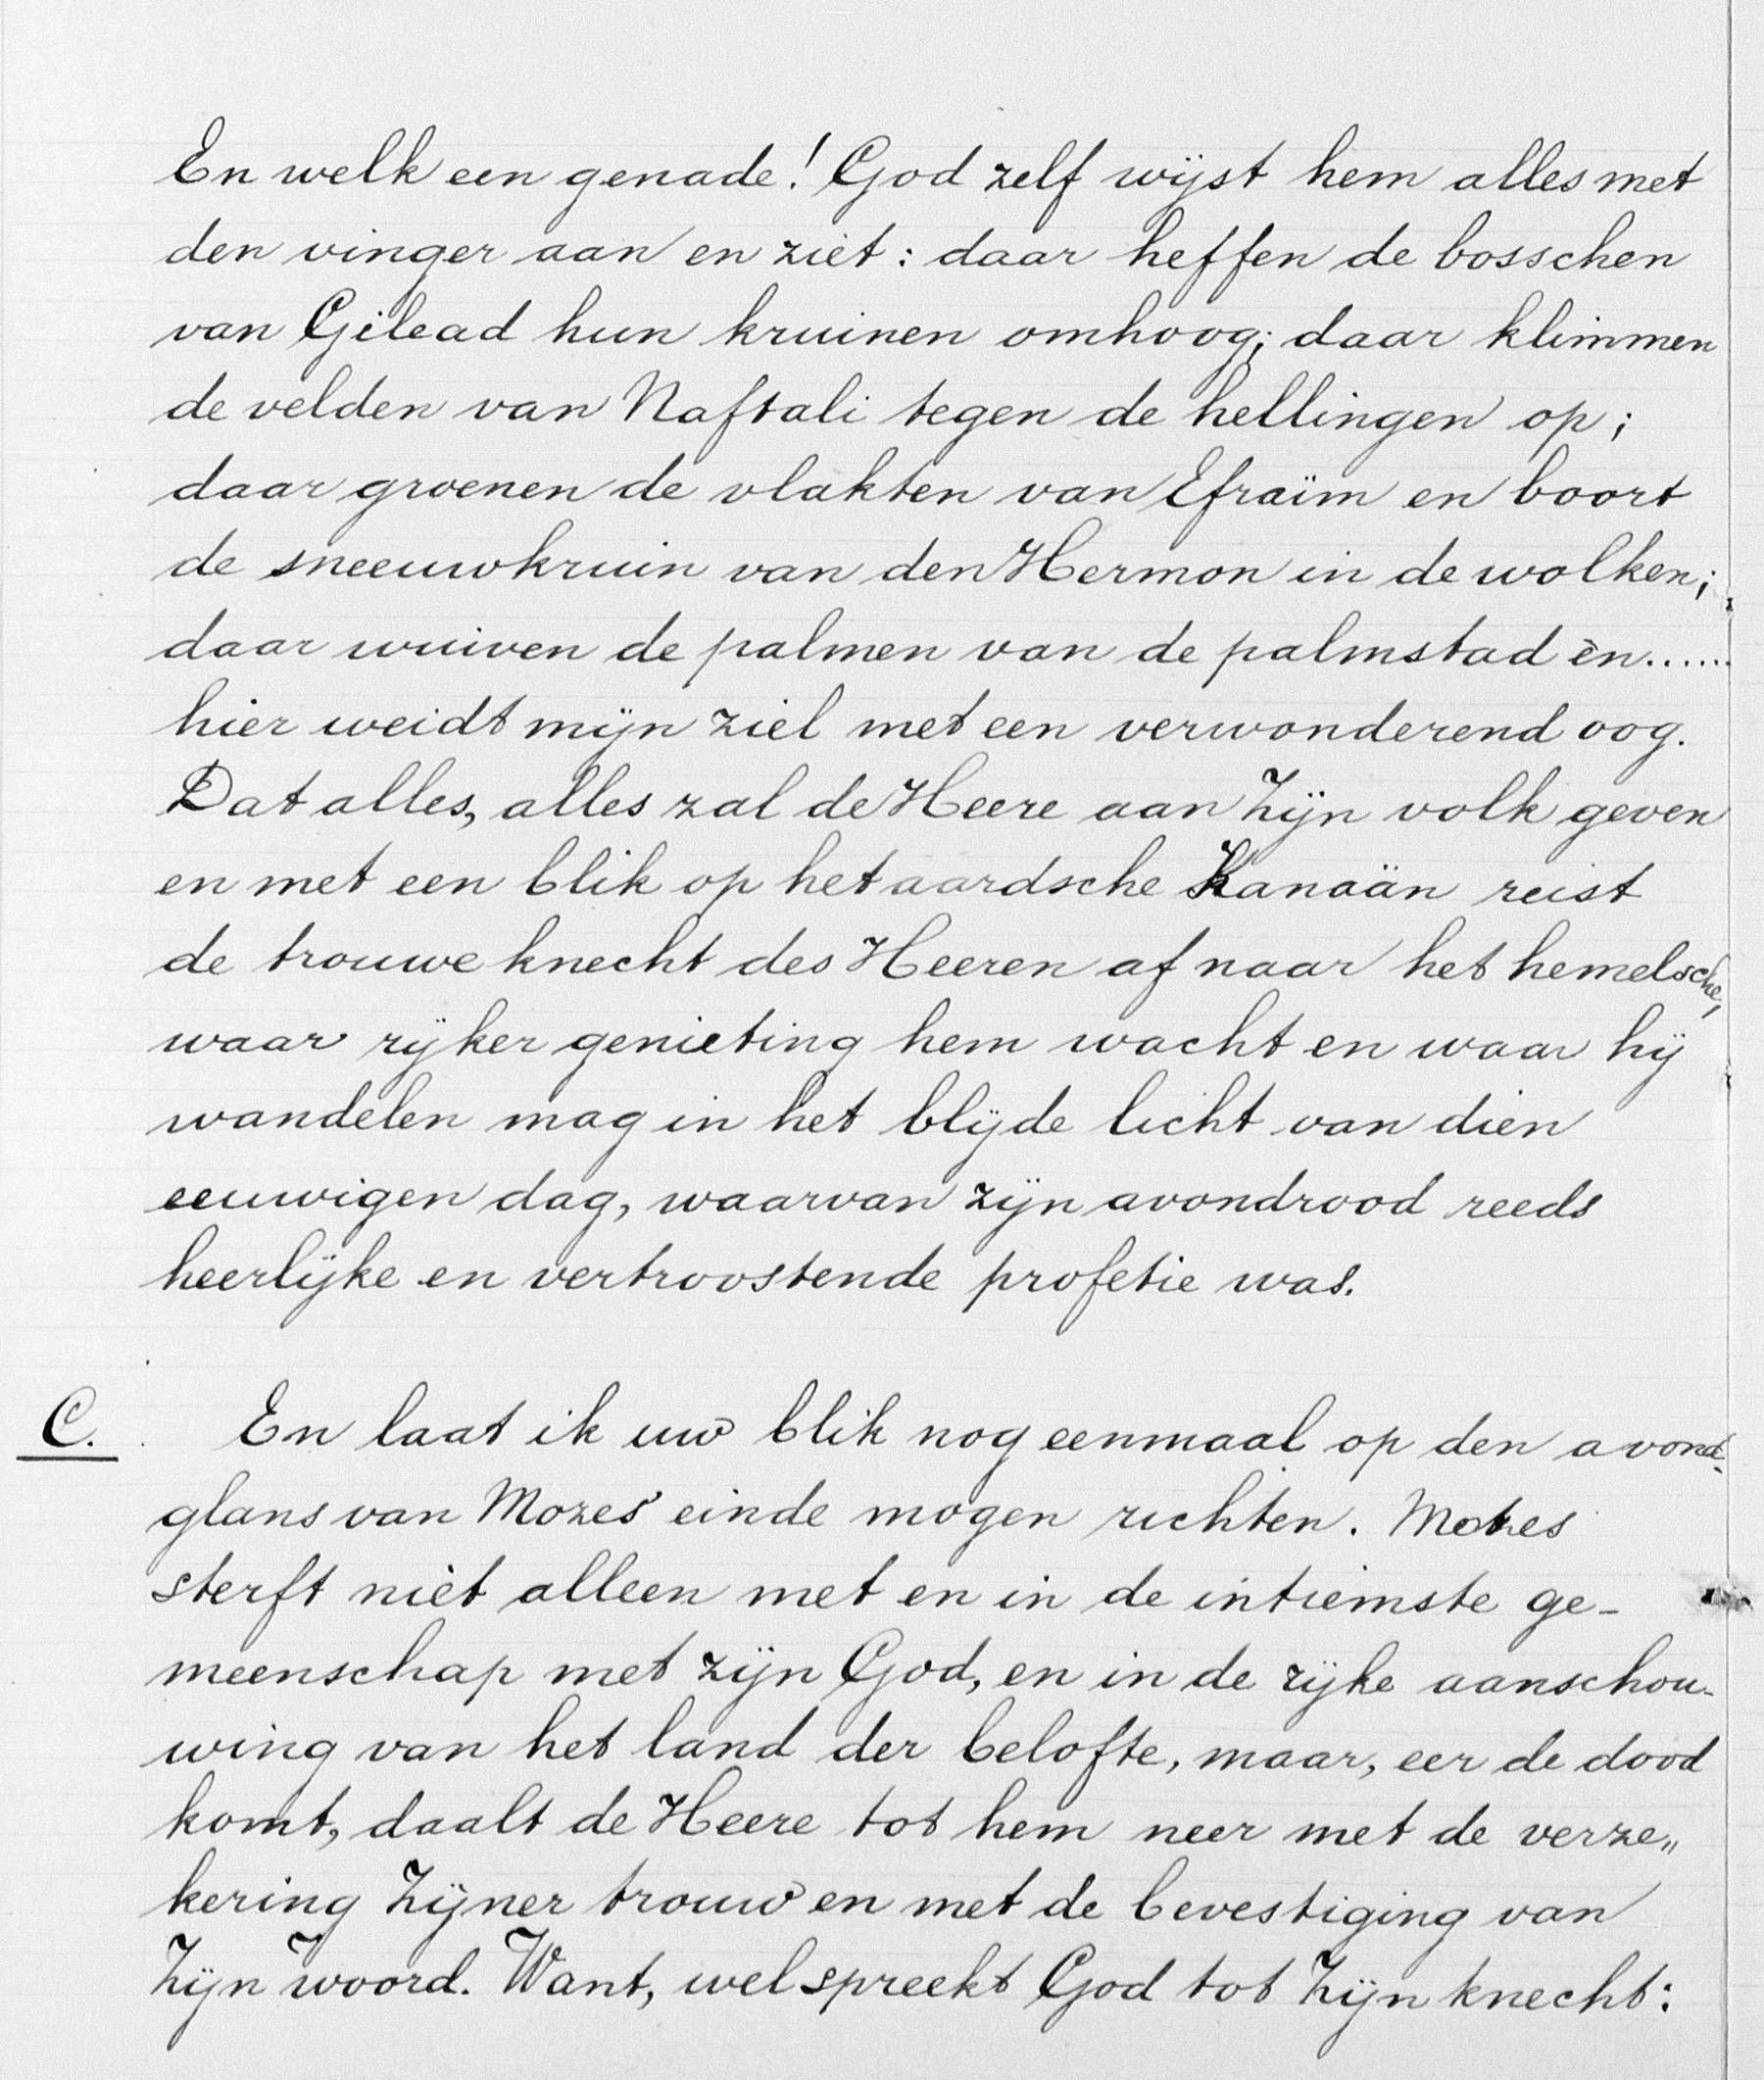 En welk een genade! God zelf wijst hem alles met
den vinger aan en ziet: daar heffen de bosschen
van Gilead hun kruinen omhoog; daar klimmen
de velden van Naftali tegen de hellingen op;
daar groenen de vlakten van Efraïm en boort
de sneeuwkruin van den Hermon in de wolken;
daar wuiven de palmen van de palmstad èn......
hier weidt mijn ziel met een verwonderend oog.
Dat alles, alles zal de Heere aan Zijn volk geven
en met een blik op het aardsche Kanaän reist
de trouwe knecht des Heeren af naar het hemelsche,
waar rijker genieting hem wacht en waar hij
wandelen mag in het blijde licht van dien
eeuwigen dag, waarvan zijn avondrood reeds
heerlijke en vertroostende profetie was.
C. En laat ik uw blik nog eenmaal op den avond-
glans van Mozes' einde mogen richten. Mozes
sterft niet alleen met en in de intiemste ge-
meenschap met zijn God, en in de rijke aanschou-
wing van het land der belofte, maar, eer de dood
komt, daalt de Heere tot hem neer met de verze„
kering Zijner trouw en met de bevestiging van
Zijn Woord. Want, wel spreekt God tot Zijn knecht: